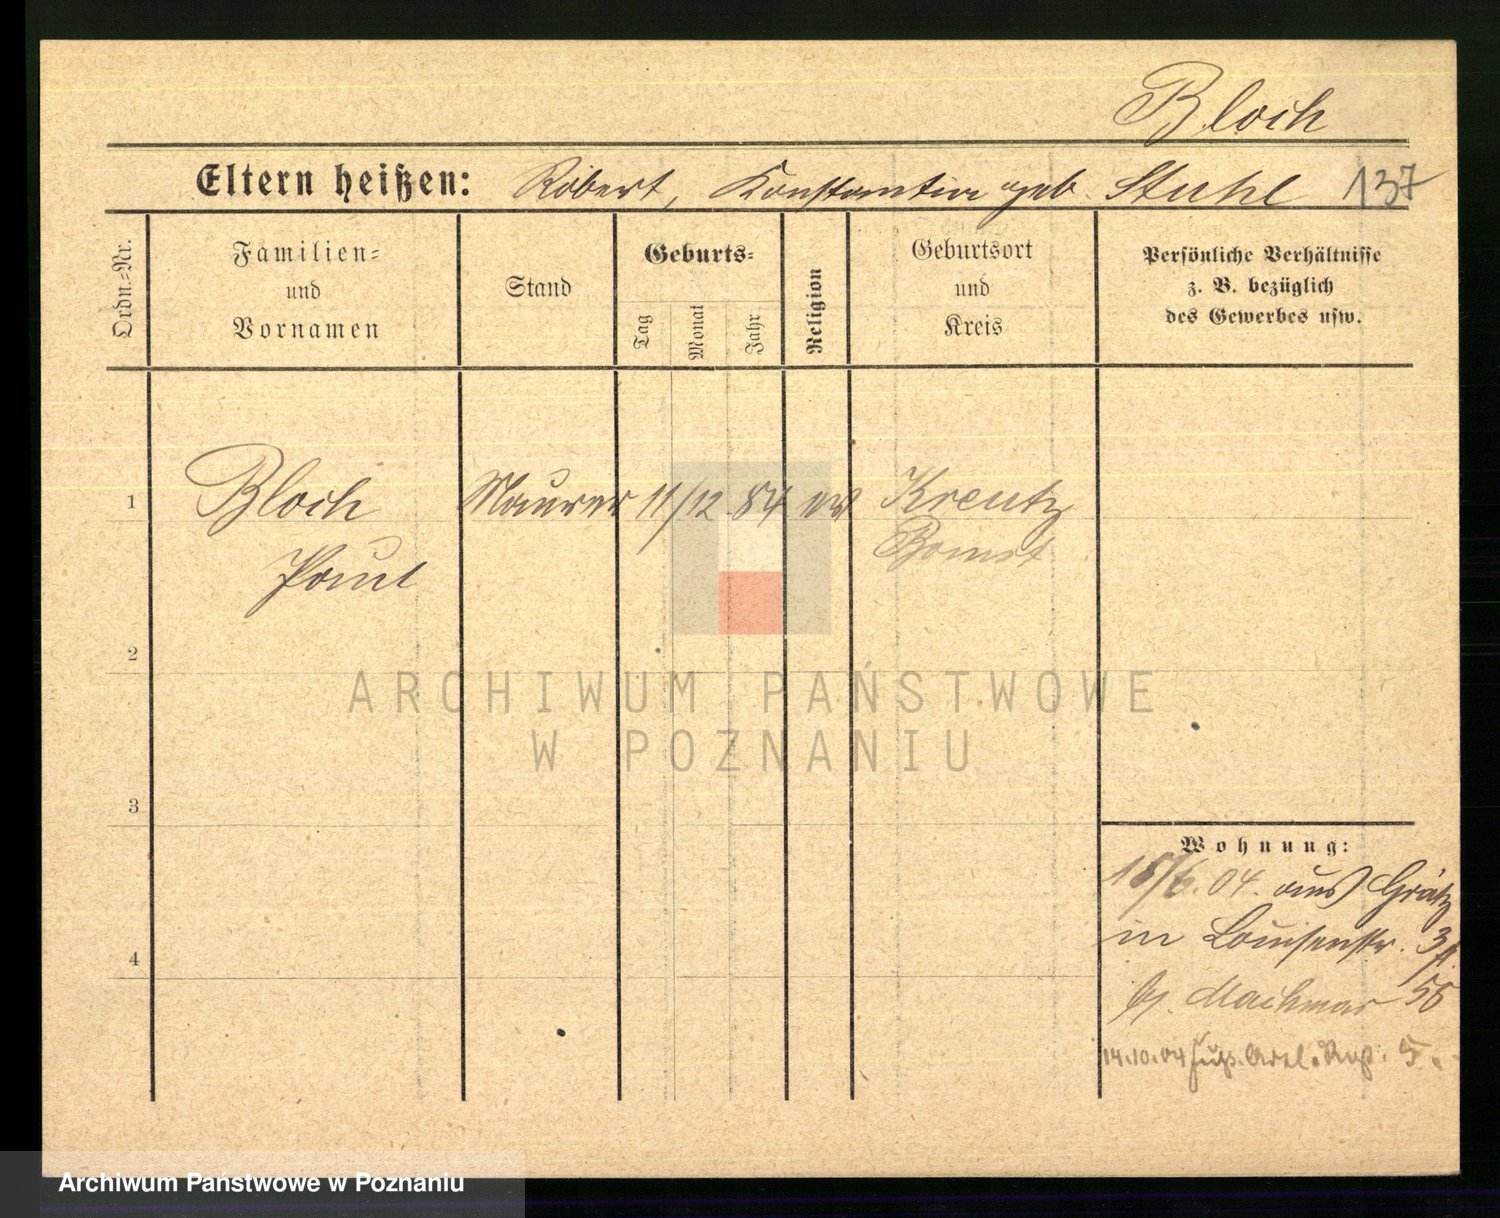 Bloch
Eltern heißen: Robert, Konstantin geb. Stuhl 137
Ordn.-Nr.
Familien- und Vornamen
Stand
Geburts-
Tag Monat Jahr
Religion
Geburtsort und Kreis
Persönliche Verhältnisse
z. B. bezüglich
des Gewerbes usw.
1 Bloch Maurer 11/12 84 ev Kreutz
Paul Bomst
2
3
4
Wohnung:
18/6. 04. aus Grätz
in Louisenstr. 3
14.10.04 Fuß. Artl. Rgt. 5.
ARCHIWUM PAŃSTWOWE
W POZNANIU
Archiwum Państwowe w Poznaniu